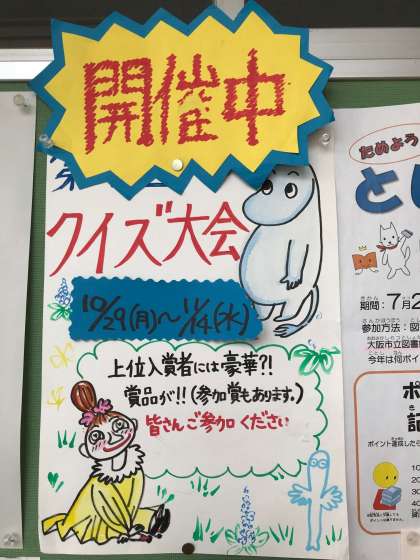 開催中
クイズ大会
10/29(月)～11/14(水)
上位入賞者には豪華?!
賞品が!!(参加賞もあります。)
皆さんご参加ください
ためよう
とし
期間：7月2
参加方法：図
大阪市立図書
今年は何ポイ
ポ
記
ポイント達成したら